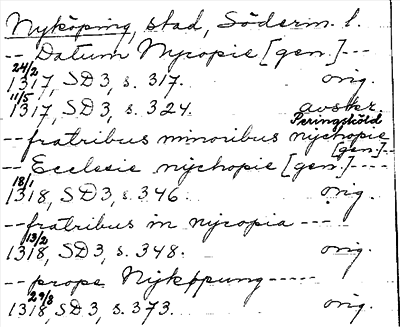 Nyköping, stad, Söderm. l.
-- Datum Nycopie [gen.] ---
24/2
1317, SD 3, s. 317. orig.
11/5
1317, SD 3, s. 324. avskr.
Peringsköld
-- fratribus minoribus nychopie
[gen.] --
-- Ecclesie nychopie [gen.] ----
18/1
1318, SD 3, s. 346. orig.
-- fratribus in nycopia ---
13/2
1318, SD 3, s. 348. orig.
-- prope Nykøpung -----
29/8
1318, SD 3, s. 373. orig.